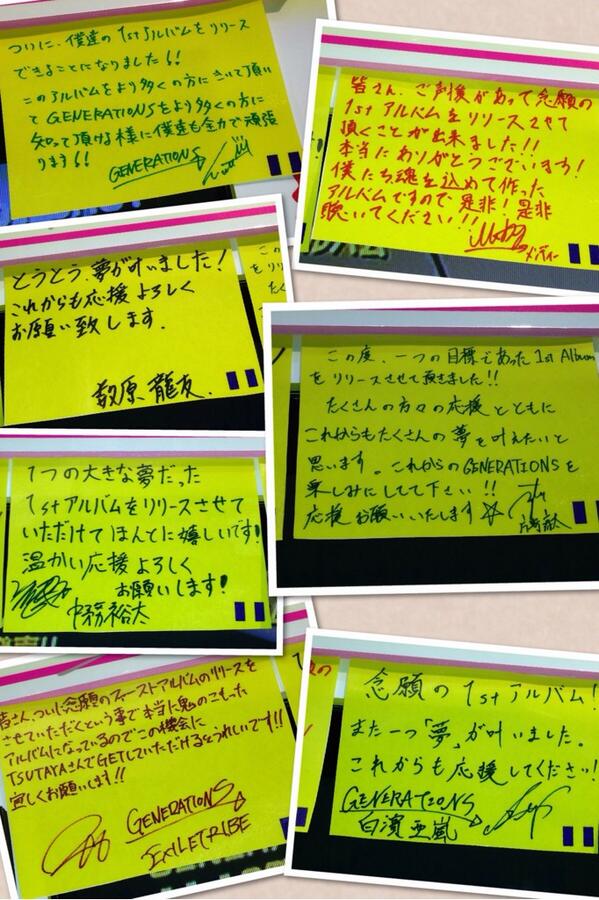 ついに、僕達の1stアルバムをリリース
できることになりました!!
このアルバムをより多くの方にきいて頂い
てGENERATIONSをより多くの方に
知って頂ける様に僕達も全力で頑張
ります!!
GENERATIONS
皆さん、ご声援があって念願の
1stアルバムをリリースさせて
頂くことが出来ました!!
本当にありがとうございます!
僕たち魂を込めて作った
アルバムですので是非!是非
聴いてください!!
メンディー
とうとう、夢が叶いました!
これからも応援よろしく
お願い致します.
数原龍友.
この度、一つの目標であった1st Album
をリリースさせて頂きました!!
たくさんの方々の応援とともに
これからもたくさんの夢を叶えたいと
思います。これからのGENERATIONSを
楽しみにしてて下さい!!
応援お願いいたします☆
1つの大きな夢だった
1stアルバムをリリースさせて
いただけてほんとに嬉しいです!
温かい応援よろしく
お願いします!
中務裕太
皆さん、ついに念願のファーストアルバムのリリースを
させていただくという事で本当に鬼のこもった
アルバムになっているのでこの機会に
TSUTAYAさんでGETしていただけるとうれしいです!!
宜しくお願いします!!
GENERATIONS
EXILE TRIBE
念願の1stアルバム!
また一つ「夢」が叶いました。
これからも応援してください!
GENERATIONS
白濱亜嵐